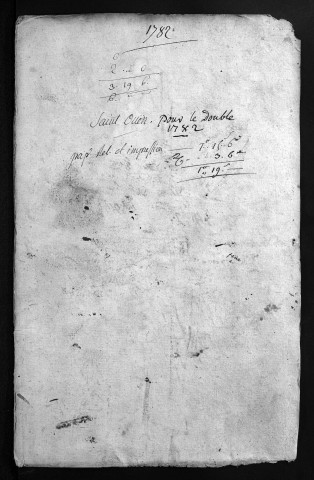 1782
2 6
3 19 6
6
Saint Ouen. pour le Double
1782
pap. et impression 1 16 6
3. 6
1 19